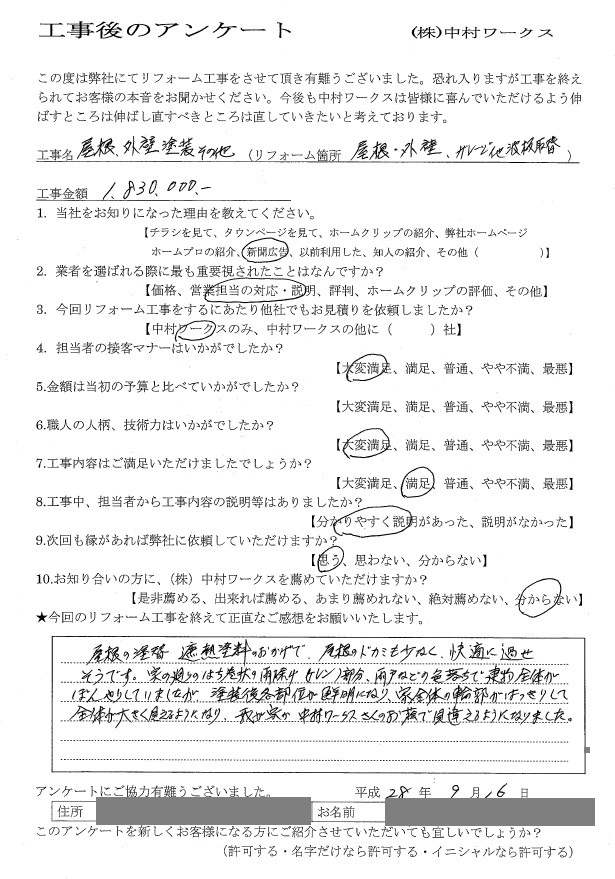 工事後のアンケート　(株)中村ワークス
この度は弊社にてリフォーム工事をさせて頂き有難うございました。恐れ入りますが工事を終え
られてお客様の本音をお聞かせください。今後も中村ワークスは皆様に喜んでいただけるよう伸
ばすところは伸ばし直すべきところは直していきたいと考えております。
工事名 屋根、外壁塗装その他 (リフォーム箇所 屋根・外壁、ガレージ他波板取替 )
工事金額 1,830,000.-
1. 当社をお知りになった理由を教えてください。
【チラシを見て、タウンページを見て、ホームクリップの紹介、弊社ホームページ
ホームプロの紹介、新聞広告、以前利用した、知人の紹介、その他（　　　　　）】
2. 業者を選ばれる際に最も重要視されたことはなんですか？
【価格、営業担当の対応・説明、評判、ホームクリップの評価、その他】
3. 今回リフォーム工事をするにあたり他社でもお見積りを依頼しましたか？
【中村ワークスのみ、中村ワークスの他に（　　　）社】
4. 担当者の接客マナーはいかがでしたか？
【大変満足、満足、普通、やや不満、最悪】
5.金額は当初の予算と比べていかがでしたか？
【大変満足、満足、普通、やや不満、最悪】
6.職人の人柄、技術力はいかがでしたか？
【大変満足、満足、普通、やや不満、最悪】
7.工事内容はご満足いただけましたでしょうか？
【大変満足、満足、普通、やや不満、最悪】
8.工事中、担当者から工事内容の説明等はありましたか？
【分かりやすく説明があった、説明がなかった】
9.次回も縁があれば弊社に依頼していただけますか？
【思う、思わない、分からない】
10.お知り合いの方に、（株）中村ワークスを薦めていただけますか？
【是非薦める、出来れば薦める、あまり薦めれない、絶対薦めない、分からない】
★今回のリフォーム工事を終えて正直なご感想をお願いいたします。
屋根の塗替 遮熱塗料のおかげで、屋根のドカミも少なく、快適に過せ
そうです。家の廻りのはち巻状の雨除け(ガレン)部分、雨戸などの色落ちで建物全体が
ぼんやりしていましたが 塗装後各部位が鮮明になり、家全体の輪郭がはっきりして
全体が大きく見えるようになり、我が家が中村ワークスさんのお蔭で見違えるようになりました。
アンケートにご協力有難うございました。　平成 28 年 9 月 16 日
住所　お名前
このアンケートを新しくお客様になる方にご紹介させていただいても宜しいでしょうか？
（許可する・名字だけなら許可する・イニシャルなら許可する）